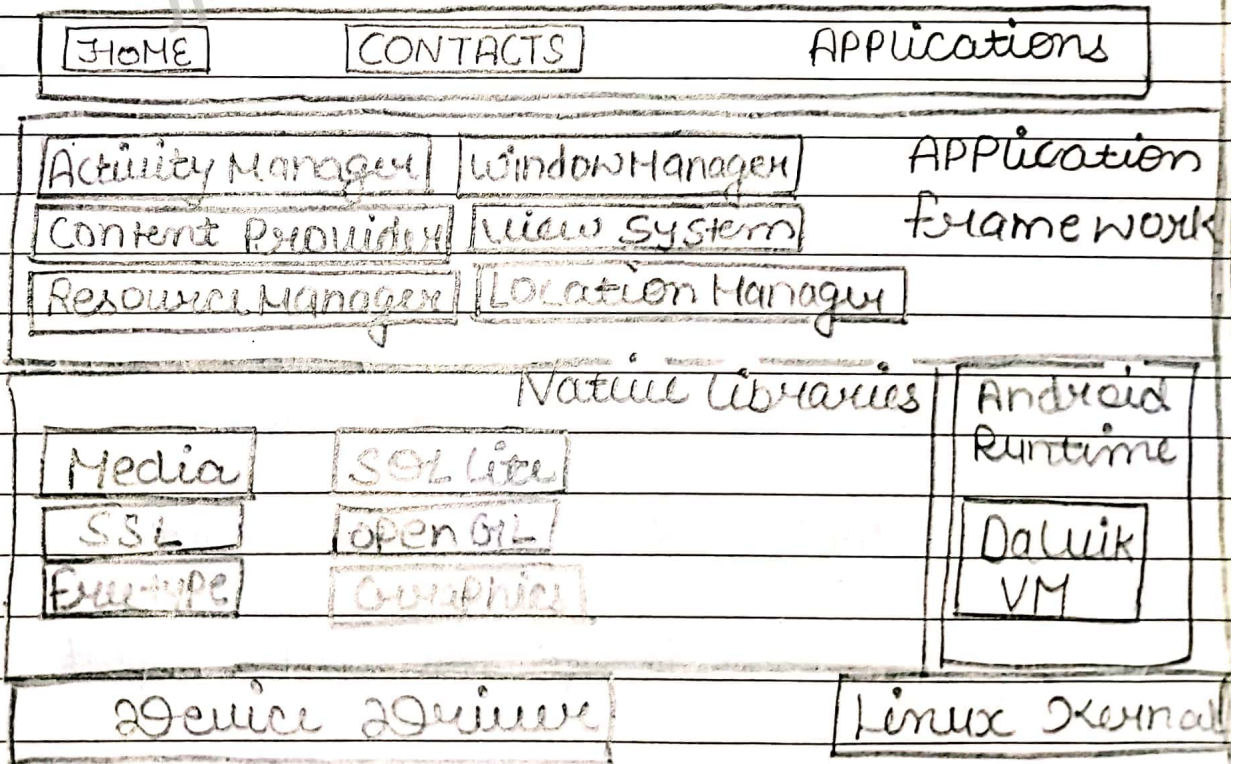 HOME CONTACTS APPlications
Activity Manager Window Manager APPlication
Content Provider View System framework
Resource Manager Location Manager
Native libraries Android
Runtime
Media SQL Lite
SSL open GL Dalvik
freetype Graphics VM
Device Driver Linux Kernal